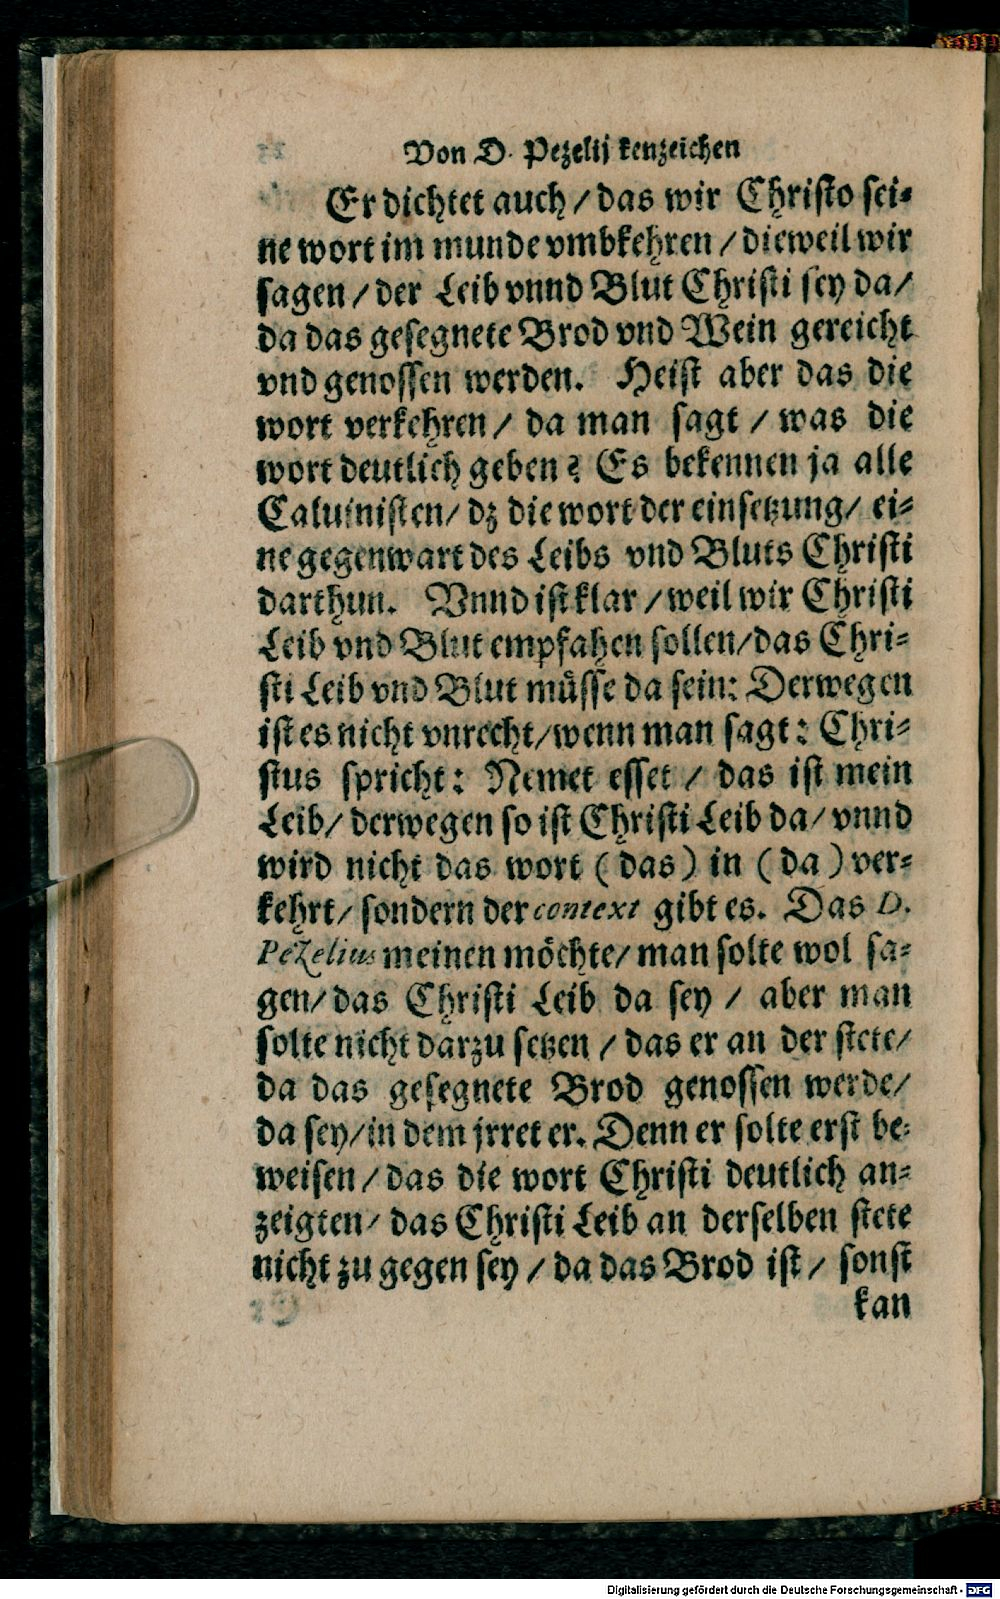 Von D. Pezelij kenzeichen
Er dichtet auch / das wir Christo sei-
ne wort im munde vmbkehren / dieweil wir
sagen / der Leib vnnd Blut Christi sey da /
da das gesegnete Brod vnd Wein gereicht
vnd genossen werden. Heist aber das die
wort verkehren / da man sagt / was die
wort deutlich geben? Es bekennen ja alle
Caluinisten / dz die wort der einsetzung / ei-
ne gegenwart des Leibs vnd Bluts Christi
darthun. Vnnd ist klar / weil wir Christi
Leib vnd Blut empfahen sollen / das Chri-
sti Leib vnd Blut müsse da sein: Derwegen
ist es nicht vnrecht / wenn man sagt: Chri-
stus spricht: Nemet esset / das ist mein
Leib / derwegen so ist Christi Leib da / vnnd
wird nicht das wort (das) in (da) ver-
kehrt / sondern der context gibt es. Das D.
Pezelius meinen möchte / man solte wol sa-
gen / das Christi Leib da sey / aber man
solte nicht darzu setzen / das er an der stete /
da das gesegnete Brod genossen werde /
da sey / in dem jrret er. Denn er solte erst be-
weisen / das die wort Christi deutlich an-
zeigten / das Christi Leib an derselben stete
nicht zu gegen sey / da das Brod ist / sonst
kan
Digitalisierung gefördert durch die Deutsche Forschungsgemeinschaft - DFG